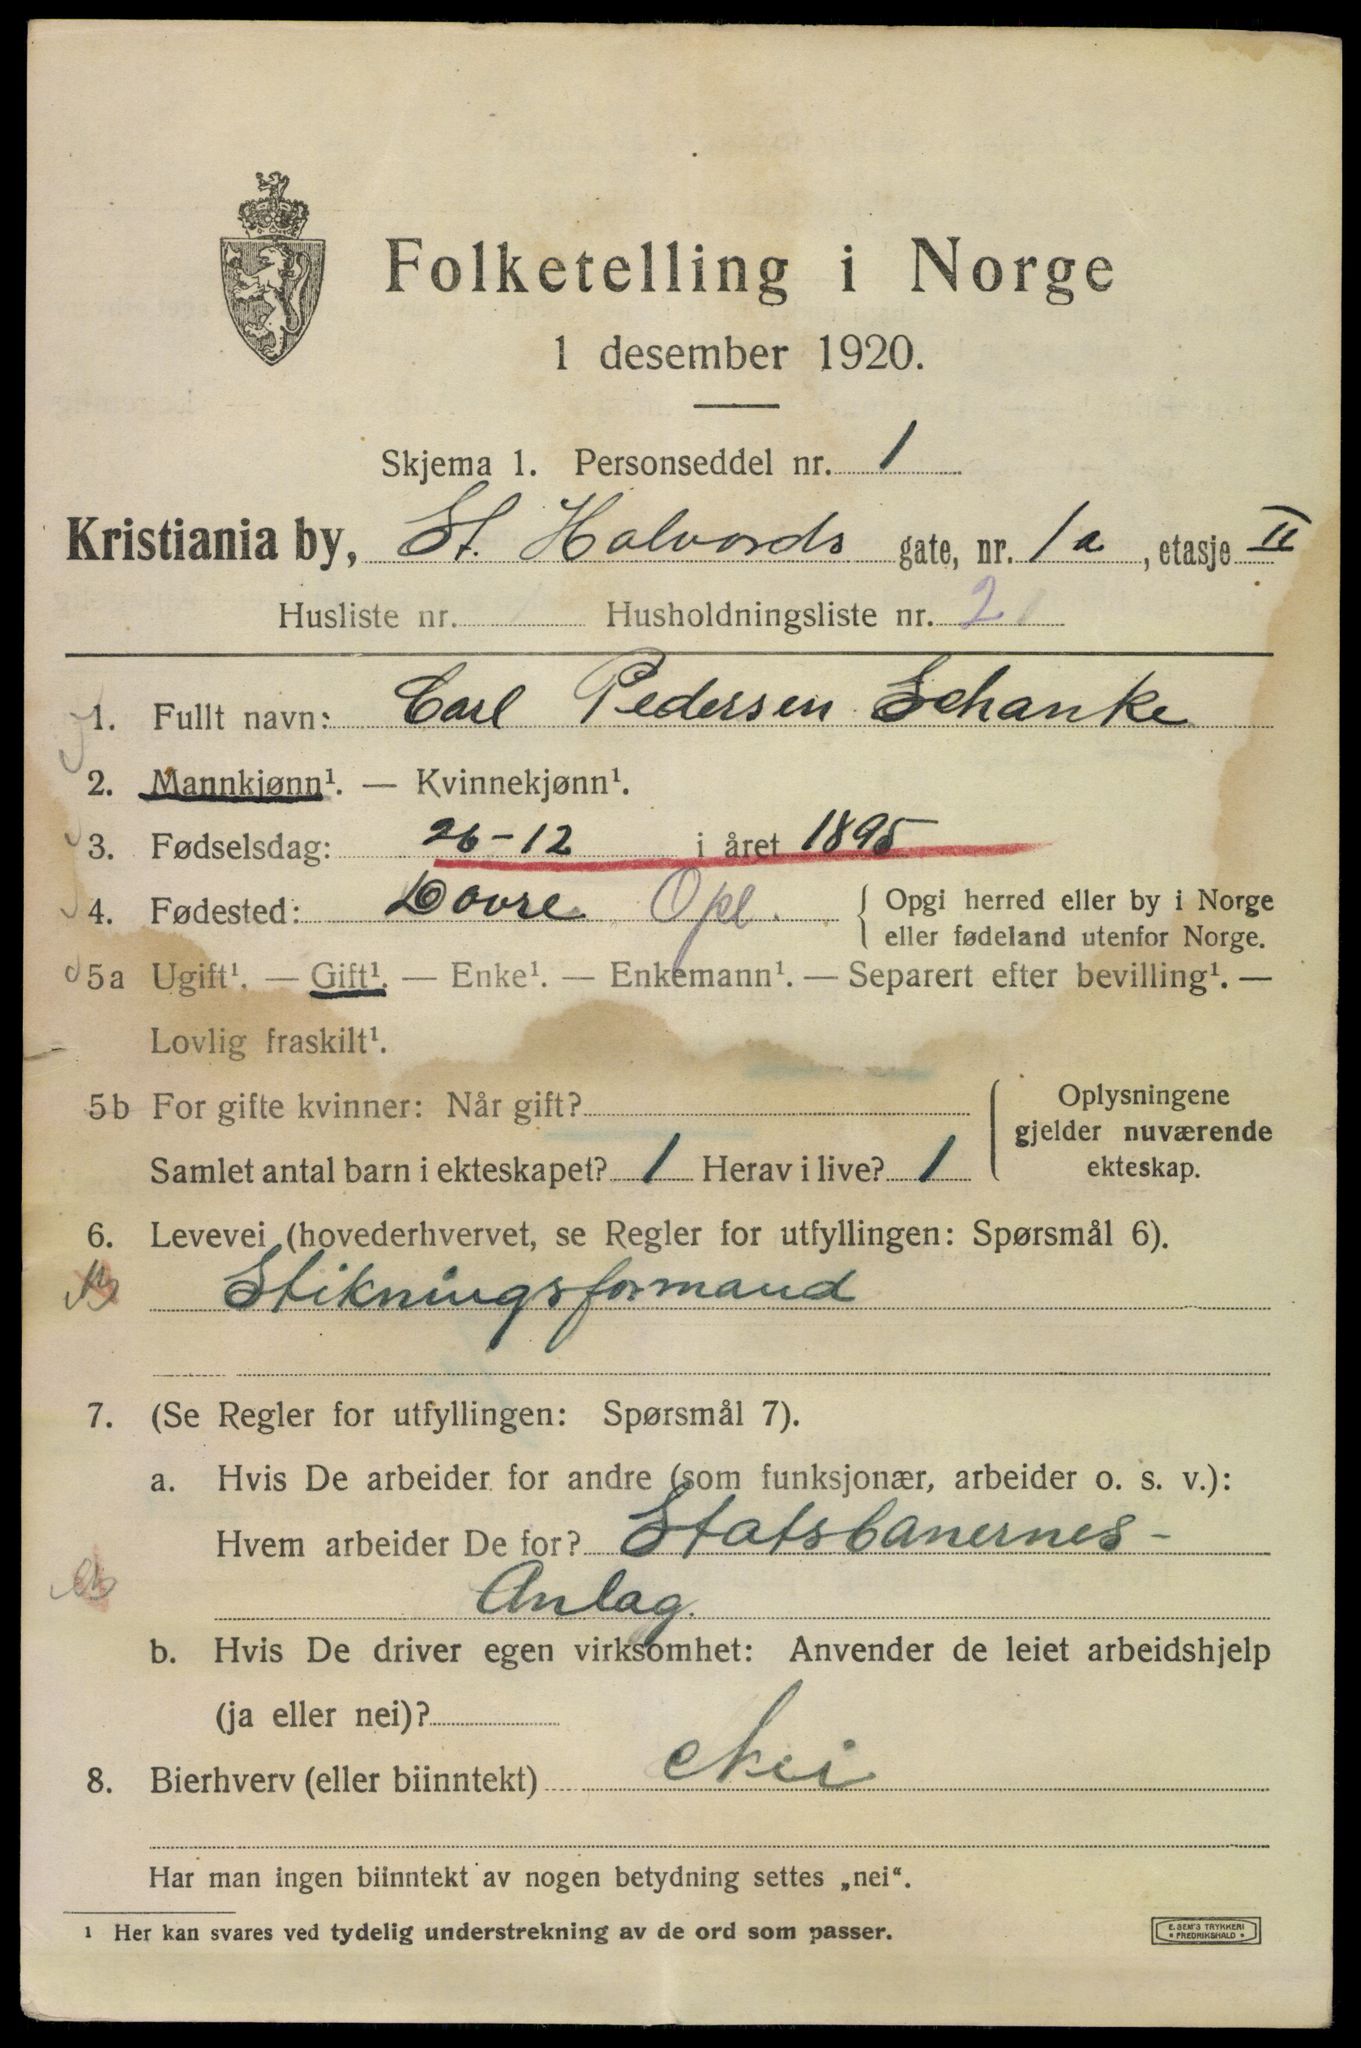 Folketelling i Norge
1 desember 1920.
Skjema 1. Personseddel nr. 1
Kristiania by, St. Halvords gate, nr. 1a, etasje II
Husliste nr. 1 Husholdningsliste nr. 2
1. Fullt navn: Carl Pedersen Schanke
2. Mannkjønn¹. — Kvinnekjønn¹.
3. Fødselsdag: 26-12 i året 1895
4. Fødested: Dovre Opl. { Opgi herred eller by i Norge
eller fødeland utenfor Norge.
5a Ugift¹. — Gift¹. — Enke¹. — Enkemann¹. — Separert efter bevilling¹. —
Lovlig fraskilt¹.
5b For gifte kvinner: Når gift?
Samlet antal barn i ekteskapet? 1 Herav i live? 1
Oplysningene
gjelder nuværende
ekteskap.
6. Levevei (hovederhvervet, se Regler for utfyllingen: Spørsmål 6).
Stikningsformand
7. (Se Regler for utfyllingen: Spørsmål 7).
a. Hvis De arbeider for andre (som funksjonær, arbeider o. s. v.):
Hvem arbeider De for? Statsbanernes-
Anlag.
b. Hvis De driver egen virksomhet: Anvender de leiet arbeidshjelp
(ja eller nei)?
8. Bierhverv (eller biinntekt) Nei
Har man ingen biinntekt av nogen betydning settes „nei“.
¹ Her kan svares ved tydelig understrekning av de ord som passer.
E. SEM'S TRYKKERI
* FREDRIKSHALD *